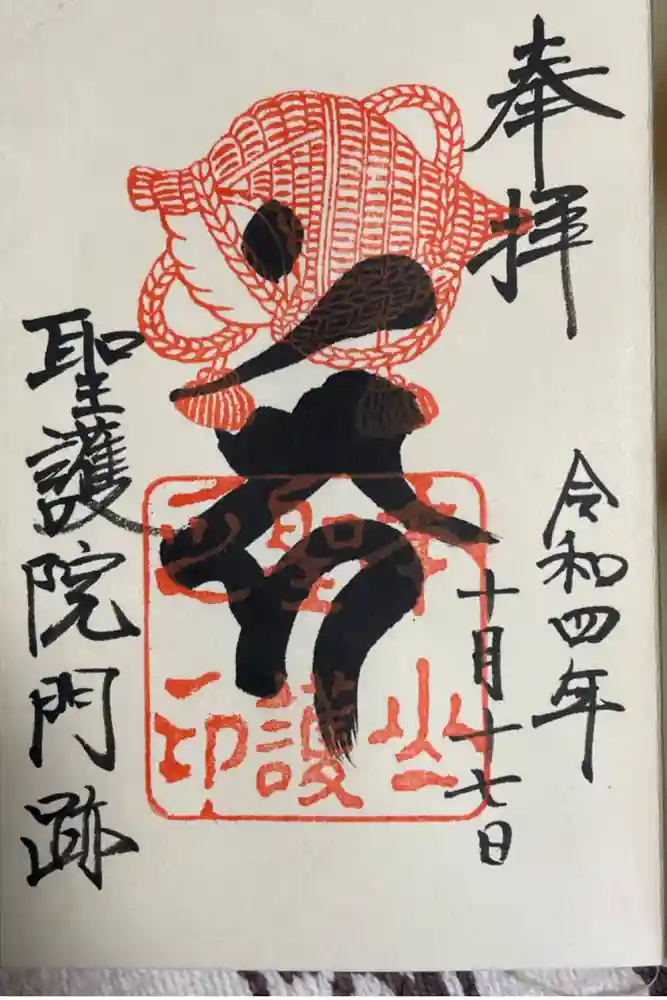 奉拝
令和四年
十月十七日
聖護
印
聖護院門跡